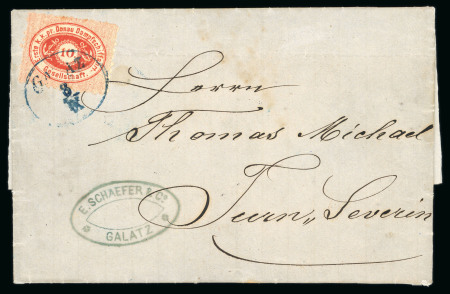 Erste k.k. pr. Donau Dampfschiffahrt
10
Gesellschaft.
GALATZ
8/
Herrn
Thomas Michael
Turn „ Severin
E. SCHAEFER & Co
GALATZ